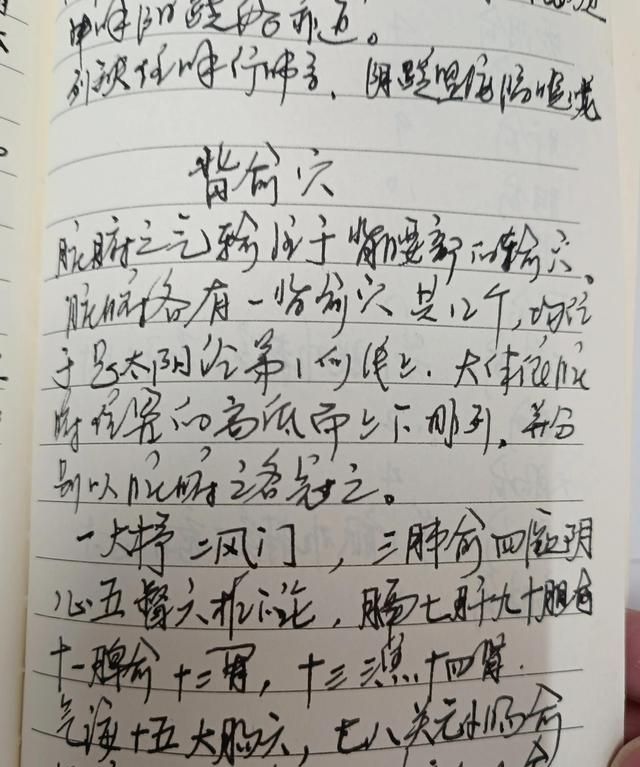 列缺任脉行肺系，阴跷照海膈喉咙
背俞穴
脏腑之气输注于背腰部的输穴、
脏腑各有一背俞穴 共12个，均位
于足太阳经第1侧线上．大体依脏
腑位置的高低而上下排列，并分
别以脏腑之名冠之。
一大杼 二风门，三肺俞 四厥阴
心五督六 论，膈七肝九十胆俞
十一脾俞 十二胃，十三三焦 十四肾．
气海十五大肠六，七八关元小肠俞